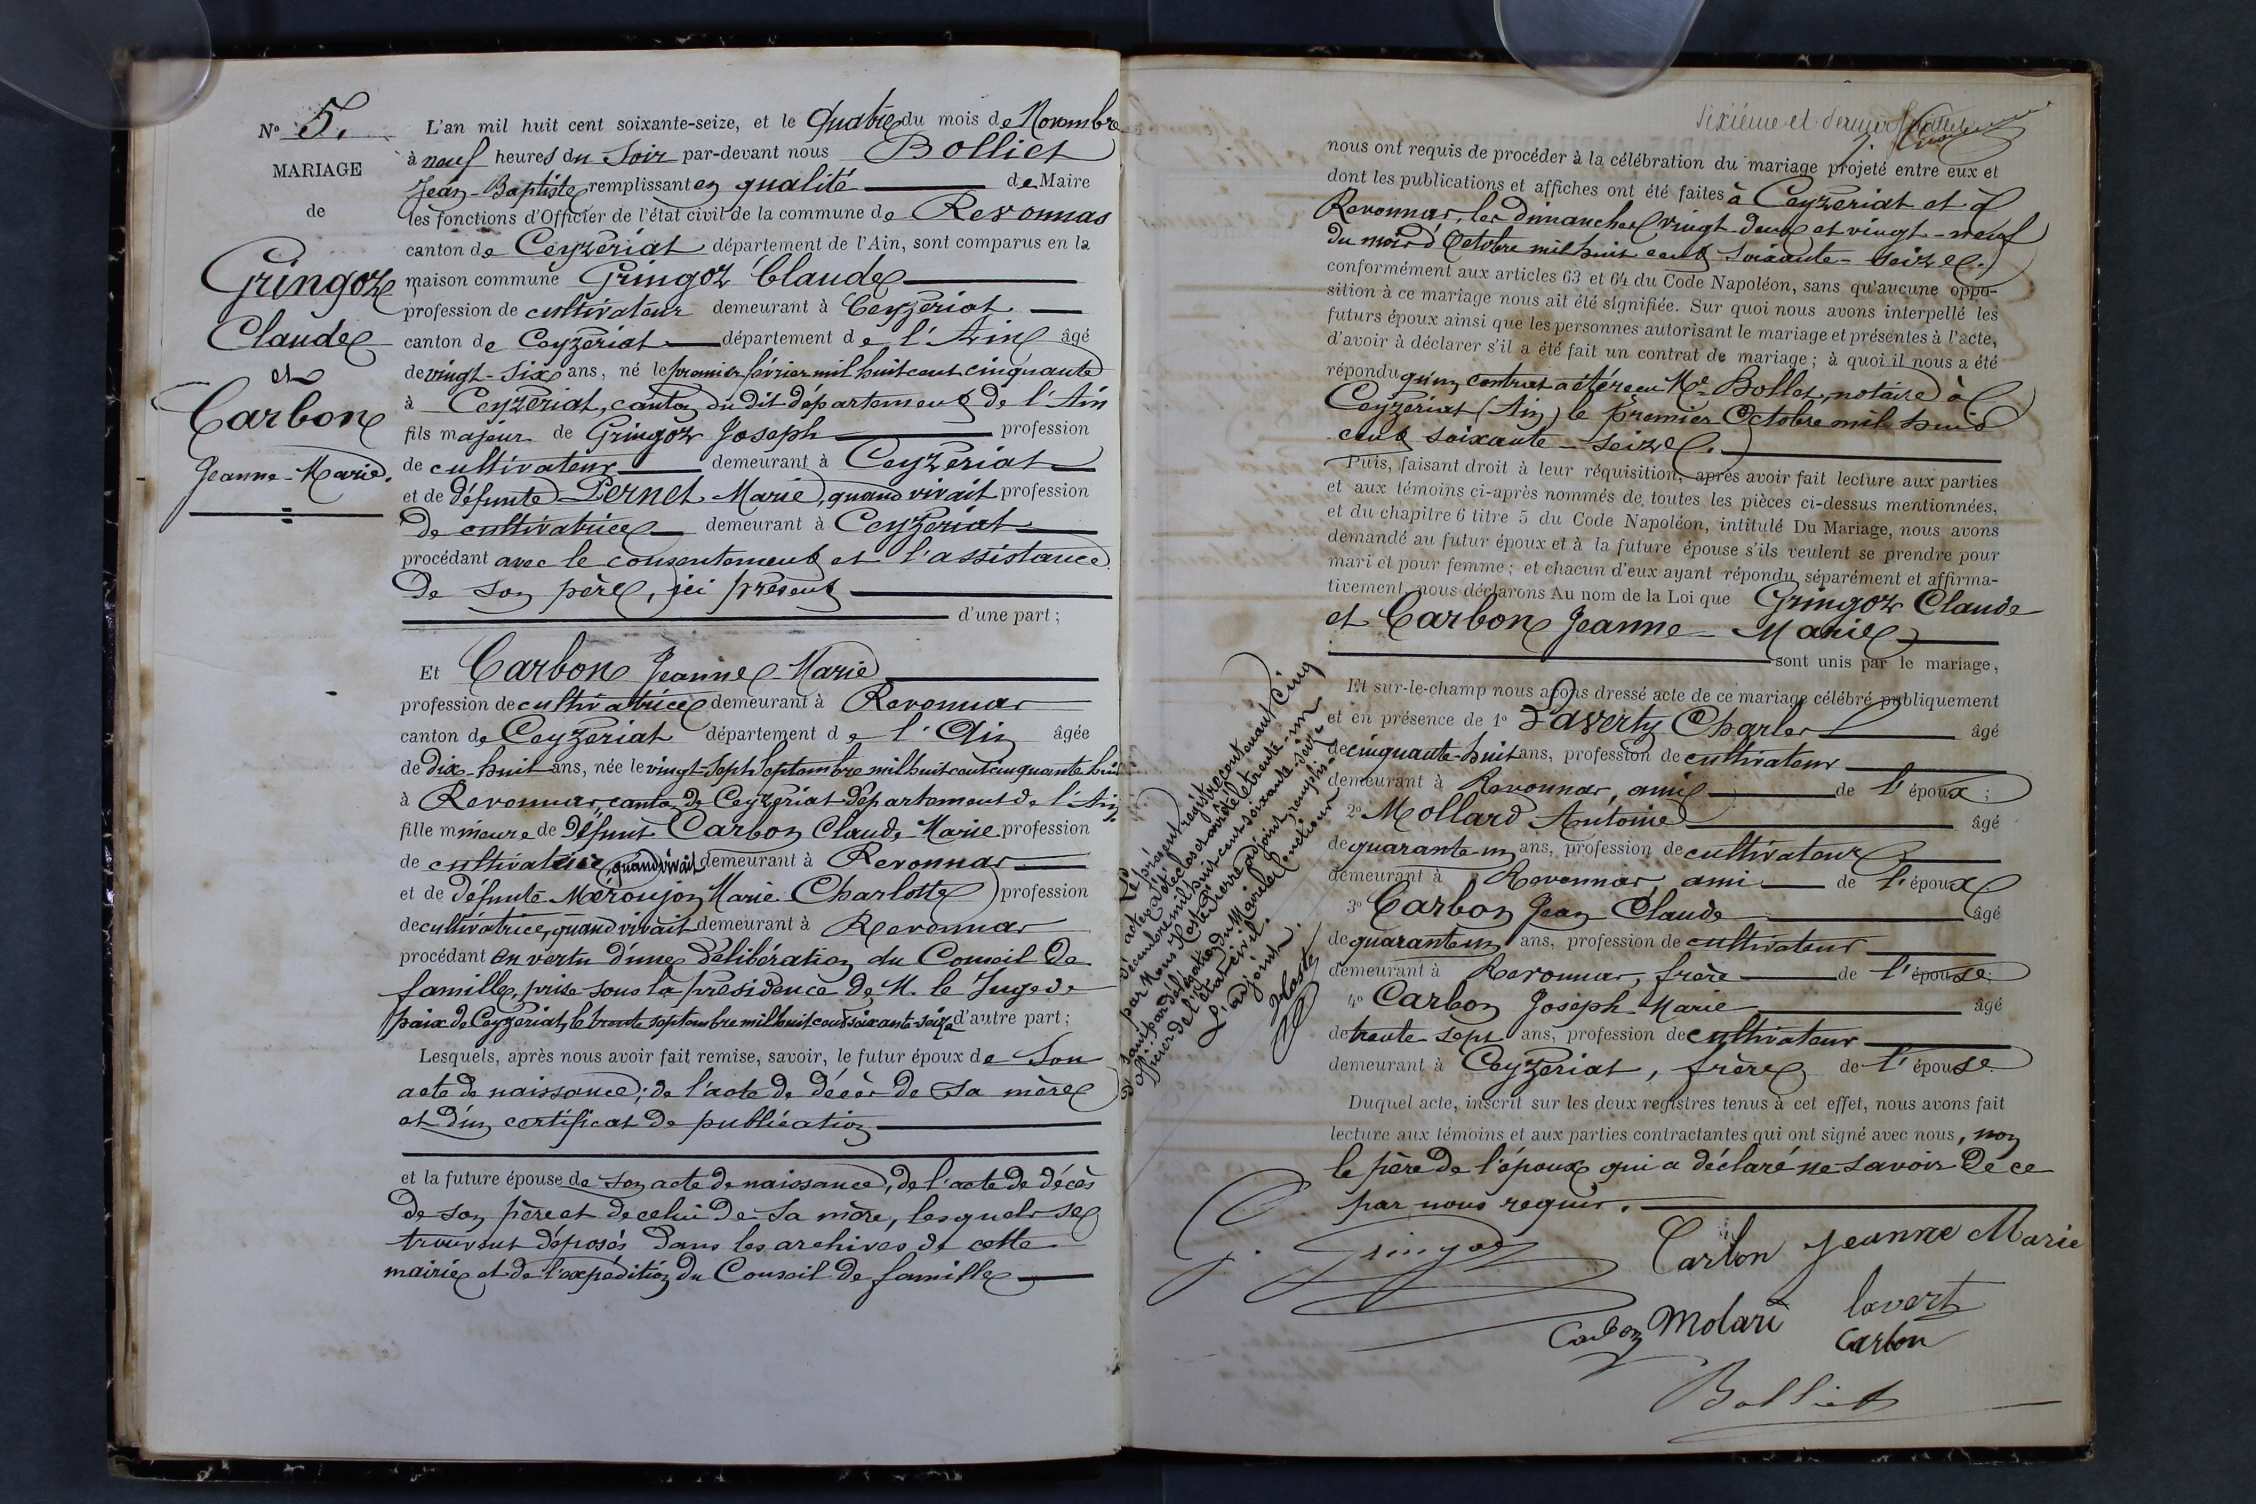 N° 5.
MARIAGE
de
Gringoz
Claude
et
Carbon
Jeanne-Marie.
L'an mil huit cent soixante-seize, et le Quatre du mois de Novembre
à neuf heures du Soir par-devant nous Bolliet
Jean-Baptiste remplissant en qualité de Maire
les fonctions d'Officier de l'état civil de la commune de Revonnas
canton de Ceyzériat département de l'Ain, sont comparus en la
maison commune Gringoz Claude
profession de cultivateur demeurant à Ceyzériat
canton de Ceyzériat département de l'Ain âgé
de vingt-six ans, né le premier février mil huit cent cinquante
à Ceyzériat, canton du dit département de l'Ain
fils majeur de Gringoz Joseph profession
de cultivateur demeurant à Ceyzériat
et de défunte Pernet Marie, quand vivait profession
de cultivatrice demeurant à Ceyzériat
procédant avec le consentement et l'assistance
de son père, ici présent
d'une part;
Et Carbon Jeanne-Marie
profession de cultivatrice demeurant à Revonnas
canton de Ceyzériat département de l'Ain âgée
de dix-huit ans, née le vingt-sept septembre mil huit cent cinquante huit
à Revonnas, canton de Ceyzériat département de l'Ain
fille mineure de défunt Carbon Claude-Marie profession
de cultivateur quand vivait demeurant à Revonnas
et de défunte Méroujon Marie Charlotte profession
de cultivatrice, quand vivait demeurant à Revonnas
procédant en vertu d'une délibération du Conseil de
famille, prise sous la présidence de M. le Juge de
paix de Ceyzériat, le trente septembre mil huit cent soixante-seize d'autre part;
Lesquels, après nous avoir fait remise, savoir, le futur époux de son
acte de naissance; de l'acte de décès de sa mère
et d'un certificat de publication
et la future épouse de son acte de naissance, de l'acte de décès
de son père et de celui de sa mère, lesquels se
trouvent déposés dans les archives de cette
mairie et de l'expédition du Conseil de famille
Sixième et dernier feuillet
nous ont requis de procéder à la célébration du mariage projeté entre eux et
dont les publications et affiches ont été faites à Ceyzériat et à
Revonnas, les dimanches vingt-deux et vingt-neuf
du mois d'Octobre mil huit cent soixante-seize.
conformément aux articles 63 et 64 du Code Napoléon, sans qu'aucune oppo-
sition à ce mariage nous ait été signifiée. Sur quoi nous avons interpellé les
futurs époux ainsi que les personnes autorisant le mariage et présentes à l'acte,
d'avoir à déclarer s'il a été fait un contrat de mariage; à quoi il nous a été
répondu qu'un contrat a été reçu Me Bollet, notaire à
Ceyzériat (Ain) le premier Octobre mil huit
cent soixante-seize.
Puis, faisant droit à leur réquisition, après avoir fait lecture aux parties
et aux témoins ci-après nommés de toutes les pièces ci-dessus mentionnées,
et du chapitre 6 titre 5 du Code Napoléon, intitulé Du Mariage, nous avons
demandé au futur époux et à la future épouse s'ils veulent se prendre pour
mari et pour femme; et chacun d'eux ayant répondu séparément et affirma-
tivement, nous déclarons Au nom de la Loi que Gringoz Claude
et Carbon Jeanne-Marie
sont unis par le mariage,
Et sur-le-champ nous avons dressé acte de ce mariage célébré publiquement
et en présence de 1° Laverty Charles âgé
de cinquante-huit ans, profession de cultivateur
demeurant à Revonnas, ami de l'époux;
2° Mollard Antoine âgé
de quarante-un ans, profession de cultivateur
demeurant à Revonnas, ami de l'époux
3° Carbon Jean Claude âgé
de quarante un ans, profession de cultivateur
demeurant à Revonnas, frère de l'épouse;
4° Carbon Joseph-Marie âgé
de trente sept ans, profession de cultivateur
demeurant à Ceyzériat, frère de l'épouse
Duquel acte, inscrit sur les deux registres tenus à cet effet, nous avons fait
lecture aux témoins et aux parties contractantes qui ont signé avec nous, non
le père de l'époux qui a déclaré ne savoir de ce
par nous requis.
Le présent registre contenant Cinq
actes a été clos et arrêté le trente-un
décembre mil huit cent soixante seize
par Nous Hoste Pierre adjoint remplis-
sant par délégation du Maire les fonctions
d'officier de l'état civil.
L'adjoint.
Hoste
C. J. Gringoz
Carbon Jeanne Marie
lavert
Carbon Molari
Carbon
Bolliet